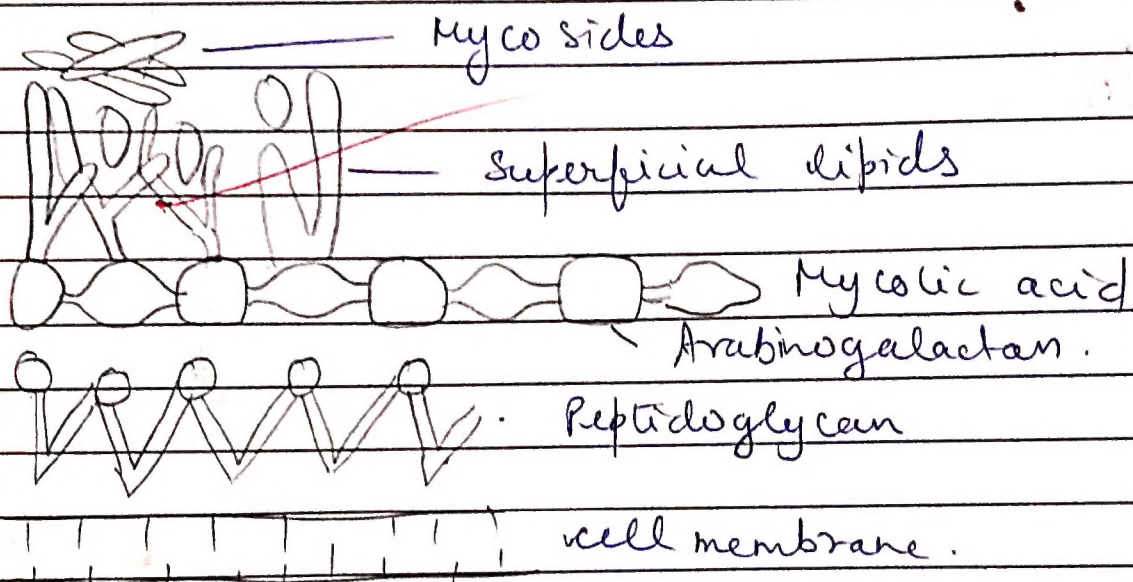 Mycosides
Superficial lipids
Mycolic acid
Arabinogalactan.
Peptidoglycan
cell membrane.